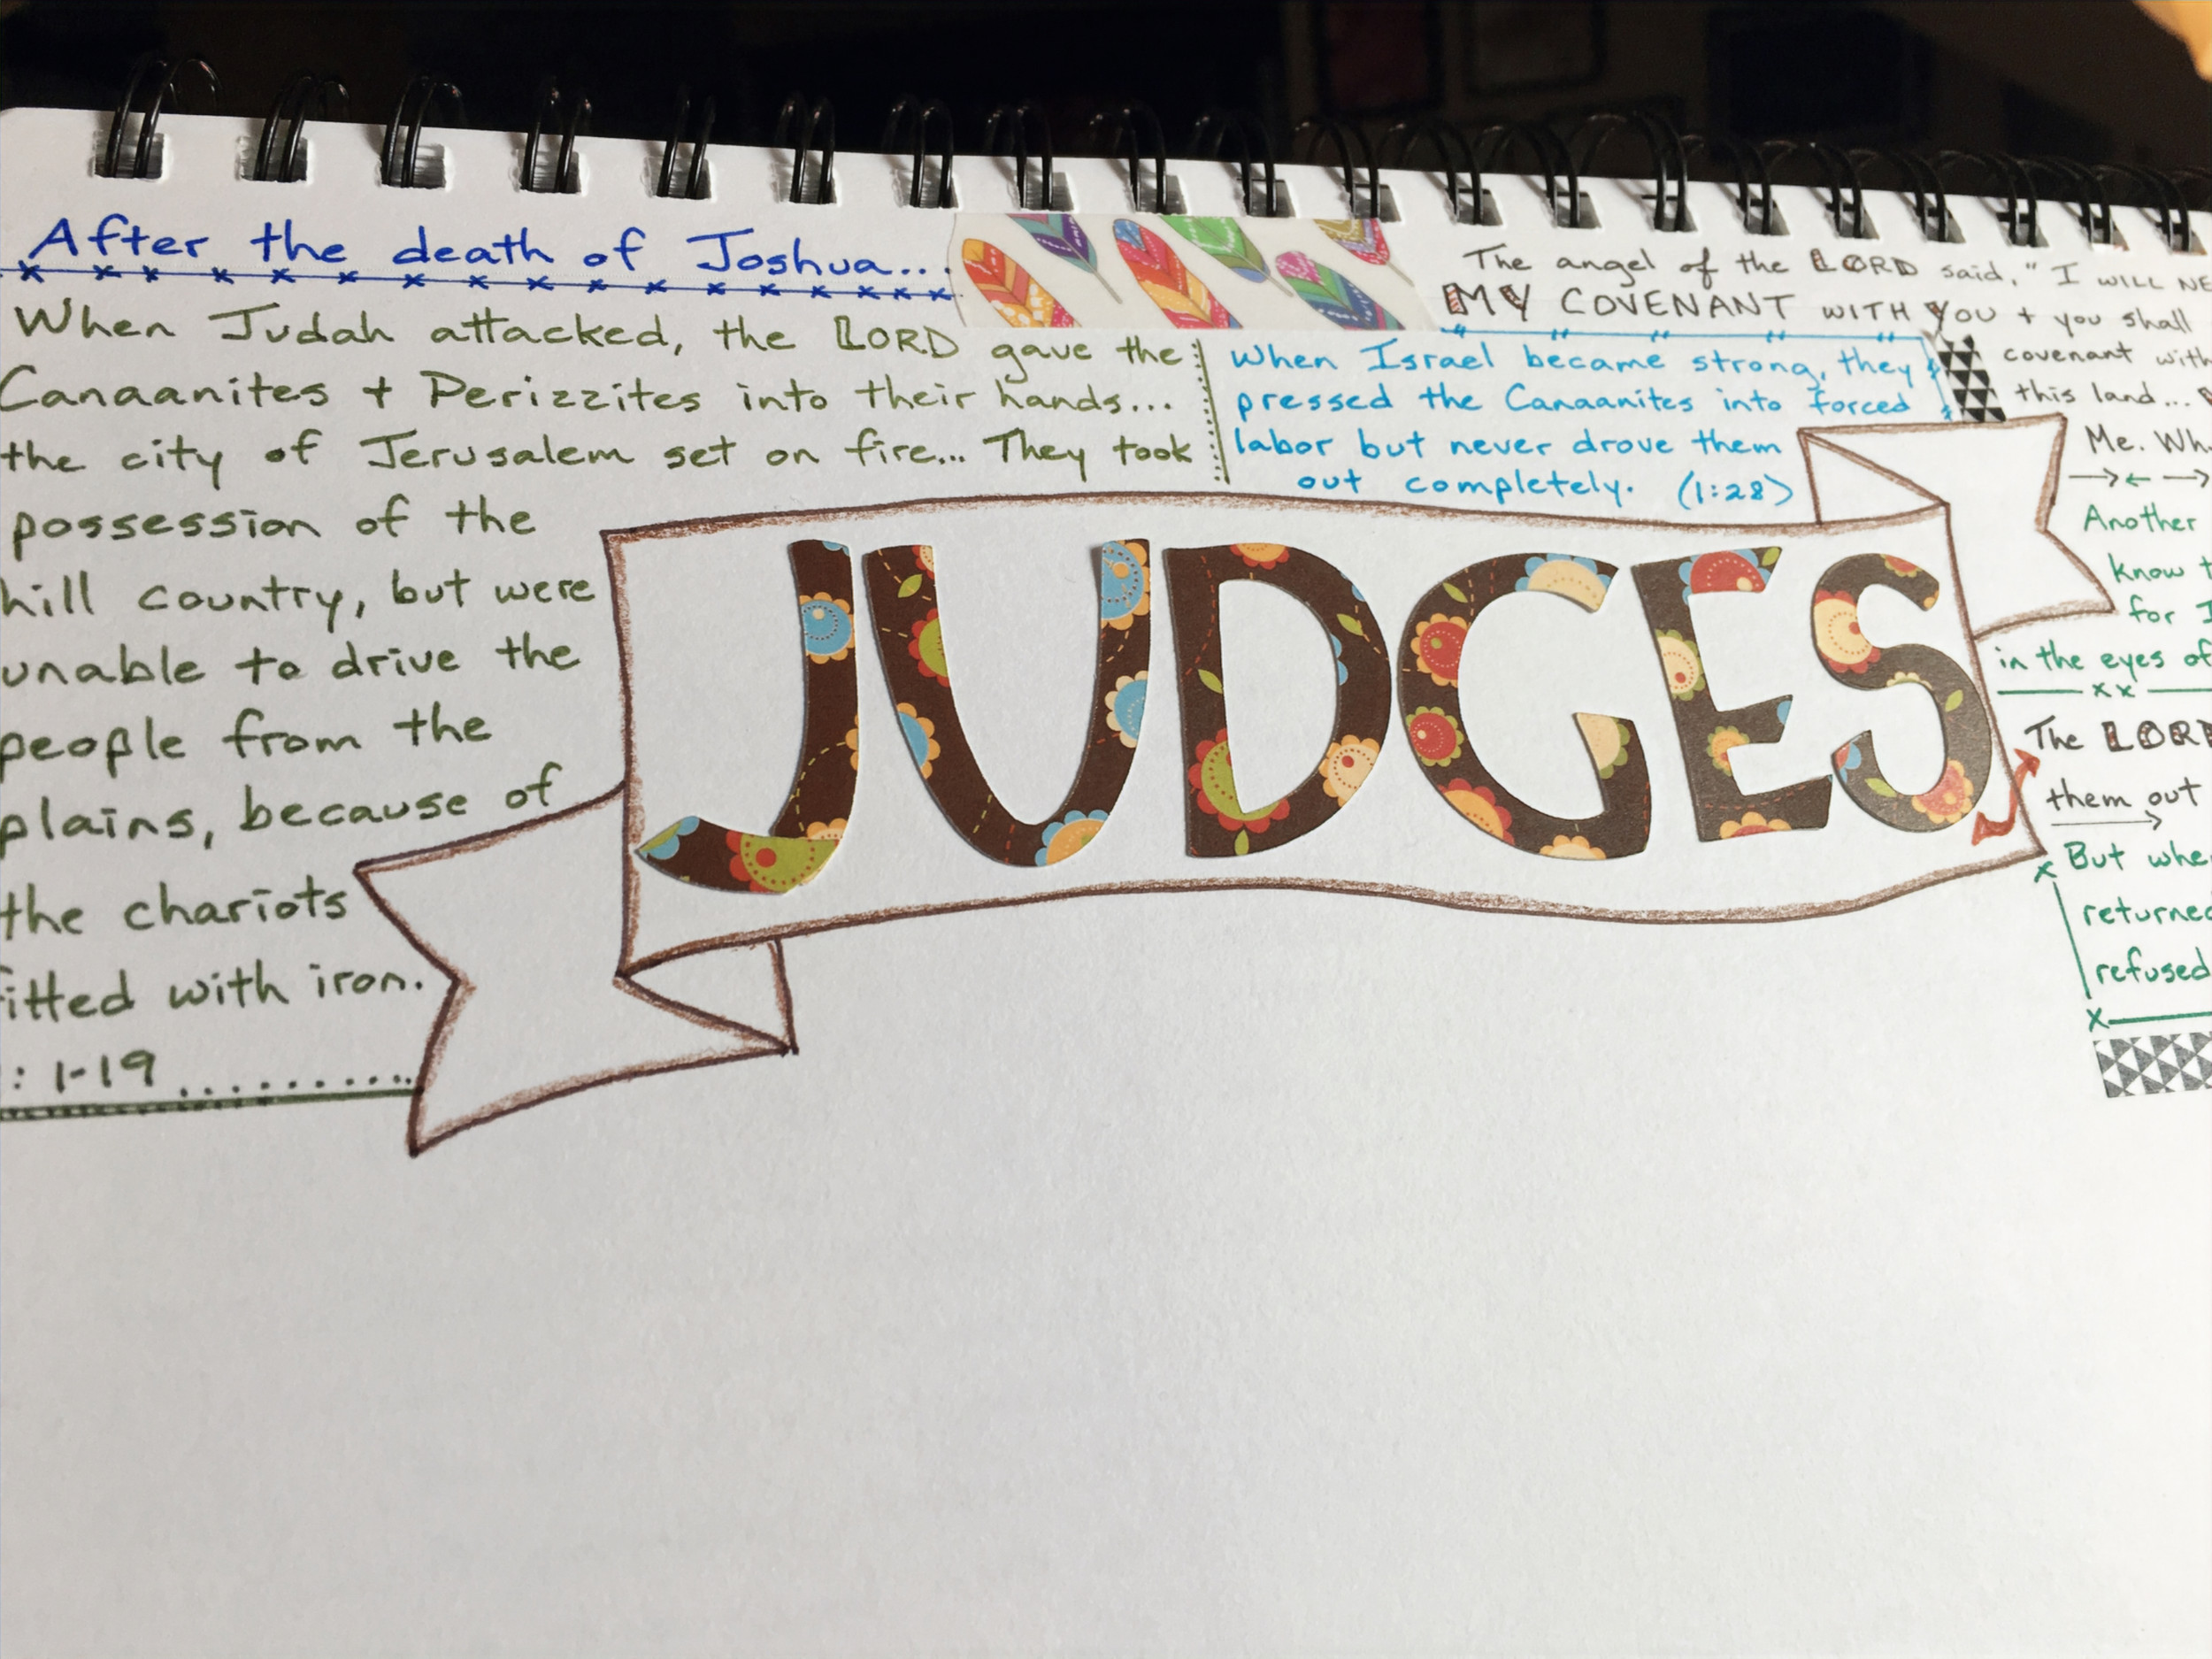 After the death of Joshua...
When Judah attacked, the LORD gave the
Canaanites + Perizzites into their hands...
the city of Jerusalem set on fire... They took
possession of the
hill country, but were
unable to drive the
people from the
plains, because of
the chariots
fitted with iron.
: 1-19
When Israel became strong, they
pressed the Canaanites into forced
labor but never drove them
out completely. (1:28)
JUDGES
The angel of the LORD said, "I WILL NE
MY COVENANT WITH YOU + you shall
covenant with
this land...
Me. Wh
Another
know t
for I
in the eyes of
The LORD
them out
But whe
returned
refused